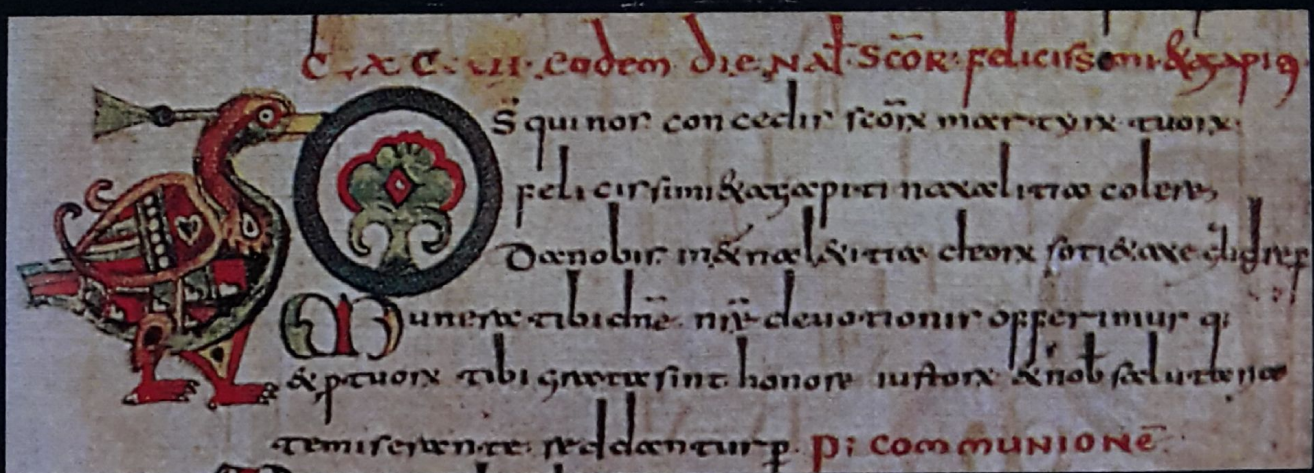 C,XC.VII. eodem die NAT SCOR felicissimi & agapiti
Ds qui nos concedis scorx martyrx tuorx
felicissimi & agapiti natalitia colere,
Da nobis in & nal & itia deorx soti & axe
Munera tibi dne nre deuotionis offerimus q;
& p tuorx tibi grata sint honore iustorx & nob salutaria
te miserante reddantur p. PI COMMUNIONE